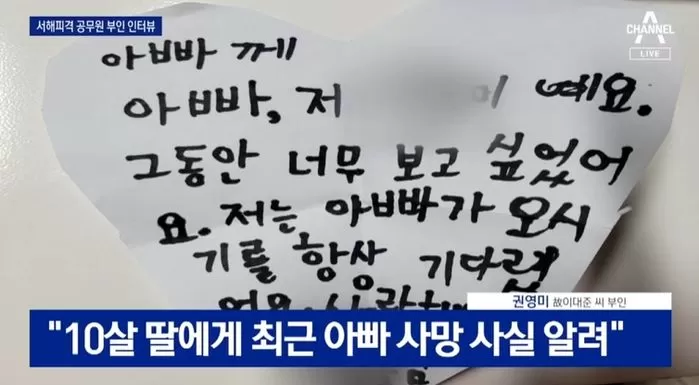 서해피격 공무원 부인 인터뷰
CHANNEL A
LIVE
아빠께
아빠, 저 예요.
그동안 너무 보고 싶었어
요. 저는 아빠가 오시
기를 항상 기다렸
권영미 故이대준 씨 부인
"10살 딸에게 최근 아빠 사망 사실 알려"